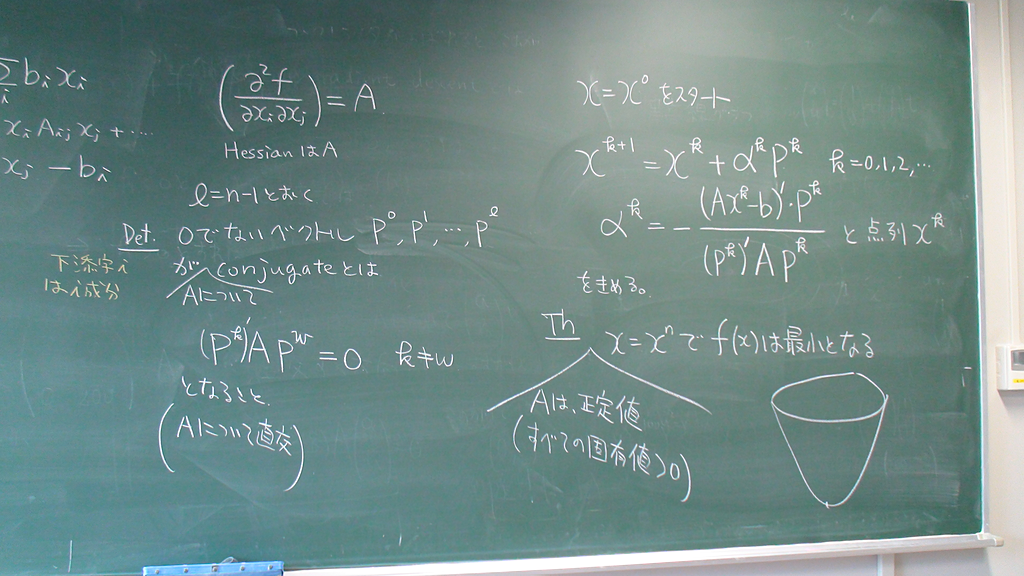 Σ_i b_i x_i
x_i A_ij x_j + ...
x_j - b_i
(∂²f/∂x_i∂x_j) = A
HessianはA
l=n-1とおく
Def. 0でないベクトル P^0, P^1, ..., P^l
が conjugateとは
Aについて
下添字i
はi成分
(P^k)'A P^w = 0 k≠w
となること.
(Aについて直交)
x = x^0 をスタート
x^{k+1} = x^k + α^k P^k k=0,1,2,...
α^k = - (Ax^k-b)'·P^k / (P^k)'A P^k と点列 x^k
をきめる。
Th x = x^n で f(x)は最小となる
Aは、正定値
(すべての固有値>0)